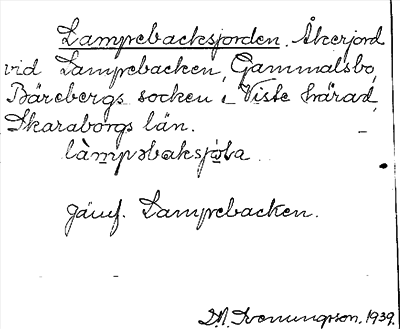 Lampebacksjorden. Åkerjord
vid Lampebacken, Gammalsbo,
Bärebergs socken i Viste härad,
Skaraborgs län.
làmpəbaksjo̱la
Jämf. Lampebacken.
D. A. Svenungsson. 1939.